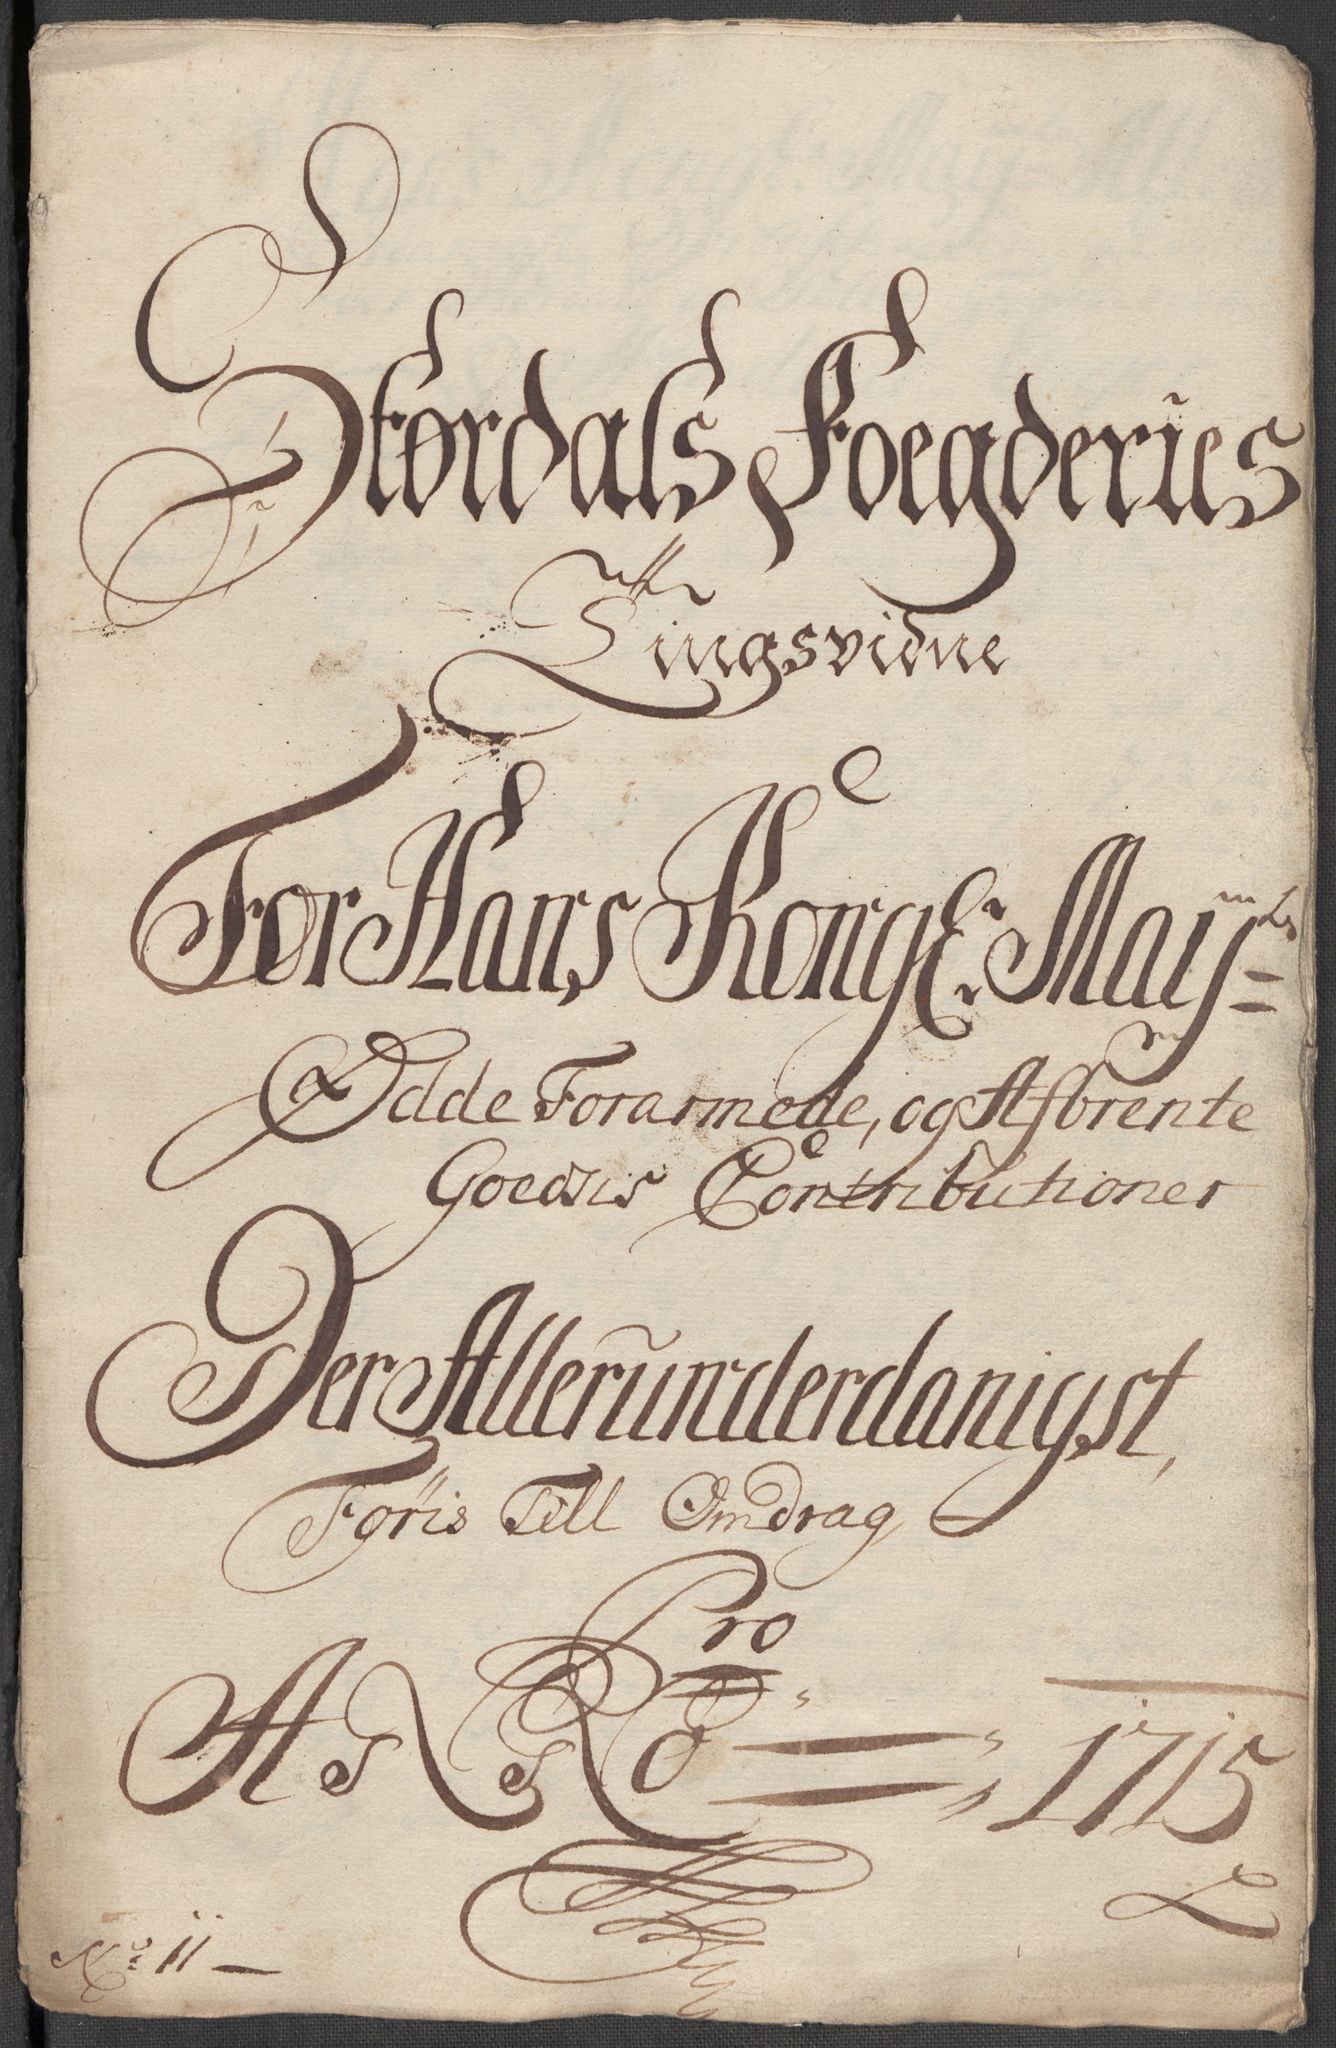 Størdals Foegderies
Tingsvidne
For Hans Kongl: Maÿ=
Ødde Forarmede, og Afbrente
Goedsis Contributioner
Der Allerunderdanigst,
Føris Till Omdrag
Pro
ANNO = 1715
No: 11